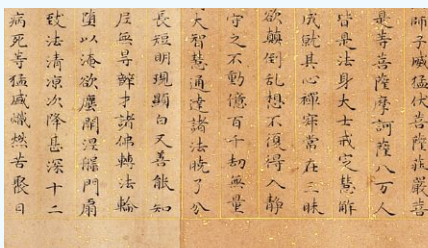 師子威猛伏菩薩莊嚴菩
是等菩薩摩訶薩八万人
皆是法身大士戒定慧解
成就其心禪寂常在三昧
欲顛倒乱想不復得入靜
守之不動億百千劫無量
大智慧通達諸法曉了分
長短明現顯白又善能知
尼無㝵辯才諸佛轉法輪
墮以淹欲塵開涅槃門扇
致法清凉次降甚深十二
病死等猛盛熾然苦聚日